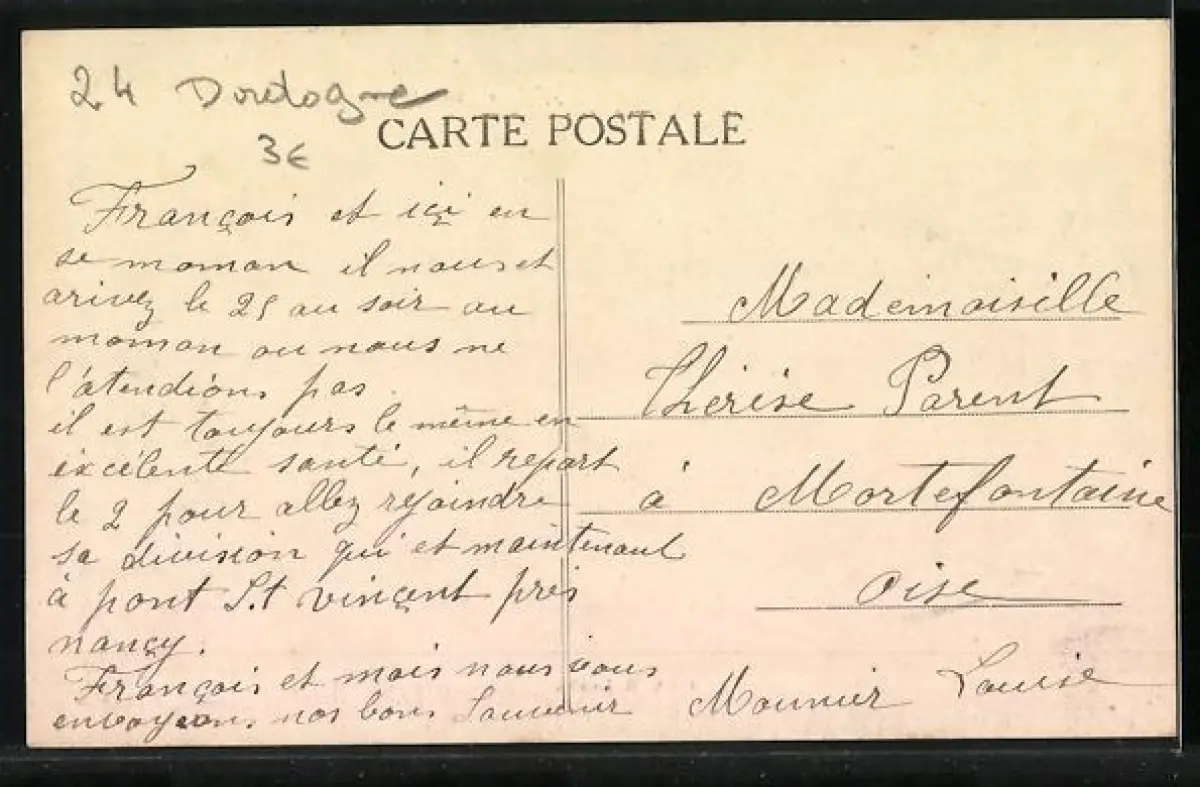 24 Dordogne
3€
CARTE POSTALE
François et içi en
se moman il nous et
arivez le 25 au soir au
moman ou nous ne
l'atendions pas.
il est toujours le même en
éxcélente santé, il repart
le 2 pour allez réjoindre
sa division qui et maintenant
à pont St vinçent près
nançy.
François et mois nous vous
envoyons nos bons Souvenir
Mademoiselle
Thérèse Parent
à Mortefontaine
Oise
Mounier Louise